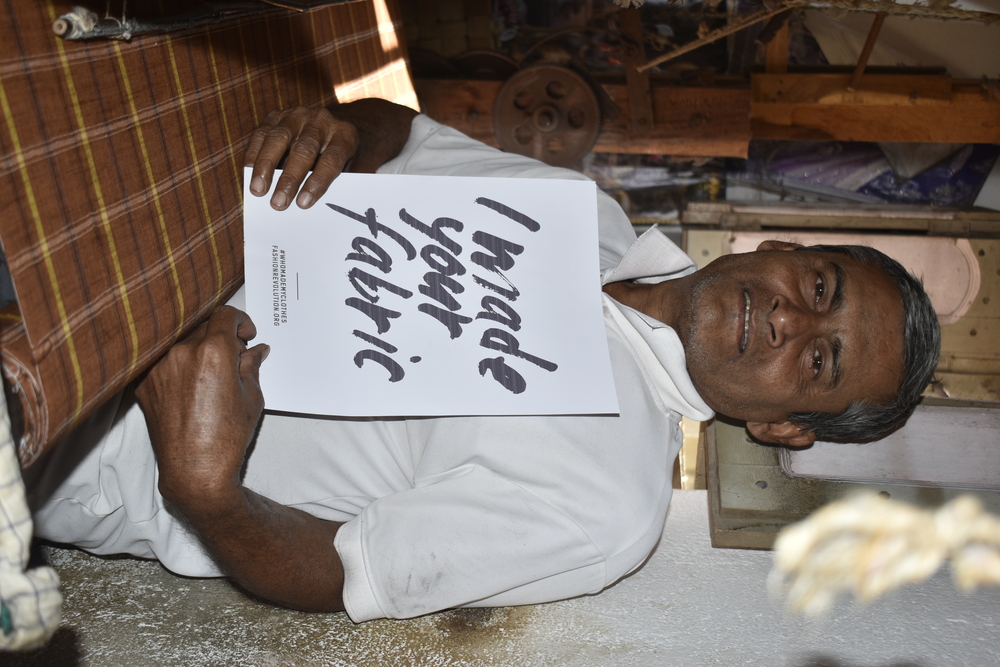 I made
your
fabric
#WHOMADEMYCLOTHES
FASHIONREVOLUTION.ORG